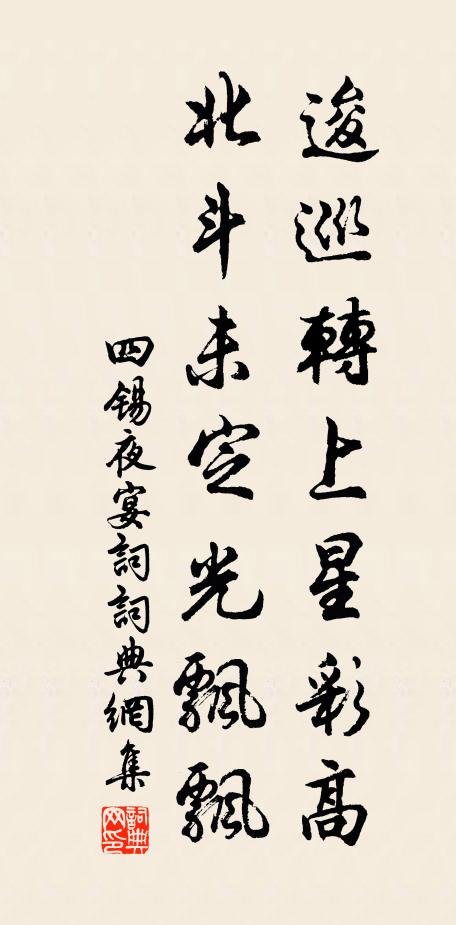 逡巡轉上星彩高
北斗未定光飄飄
四錫夜宴詞詞典網集
詞典網印